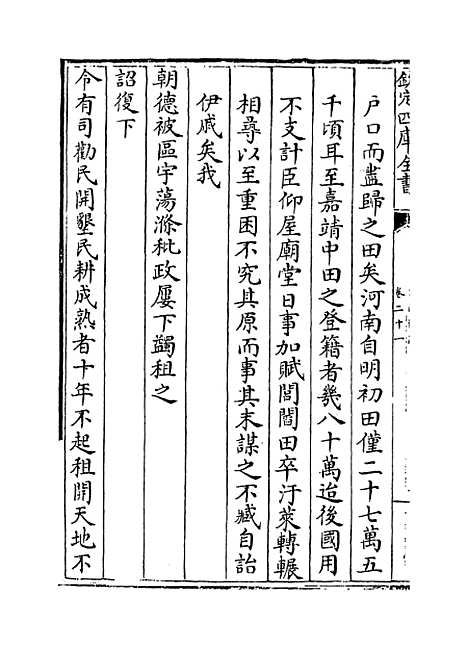 欽定四庫全書
卷二十一
戶口而盡歸之田矣河南自明初田僅二十七萬五
千頃耳至嘉靖中田之登籍者幾八十萬迨後國用
不支計臣仰屋廟堂日事加賦閭閻田卒汙萊轉輾
相尋以至重困不究其原而事其末謀之不臧自詒
伊戚矣我
朝德被區宇蕩滌秕政屢下蠲租之
詔復下
令有司勸民開墾民耕成熟者十年不起租開天地不